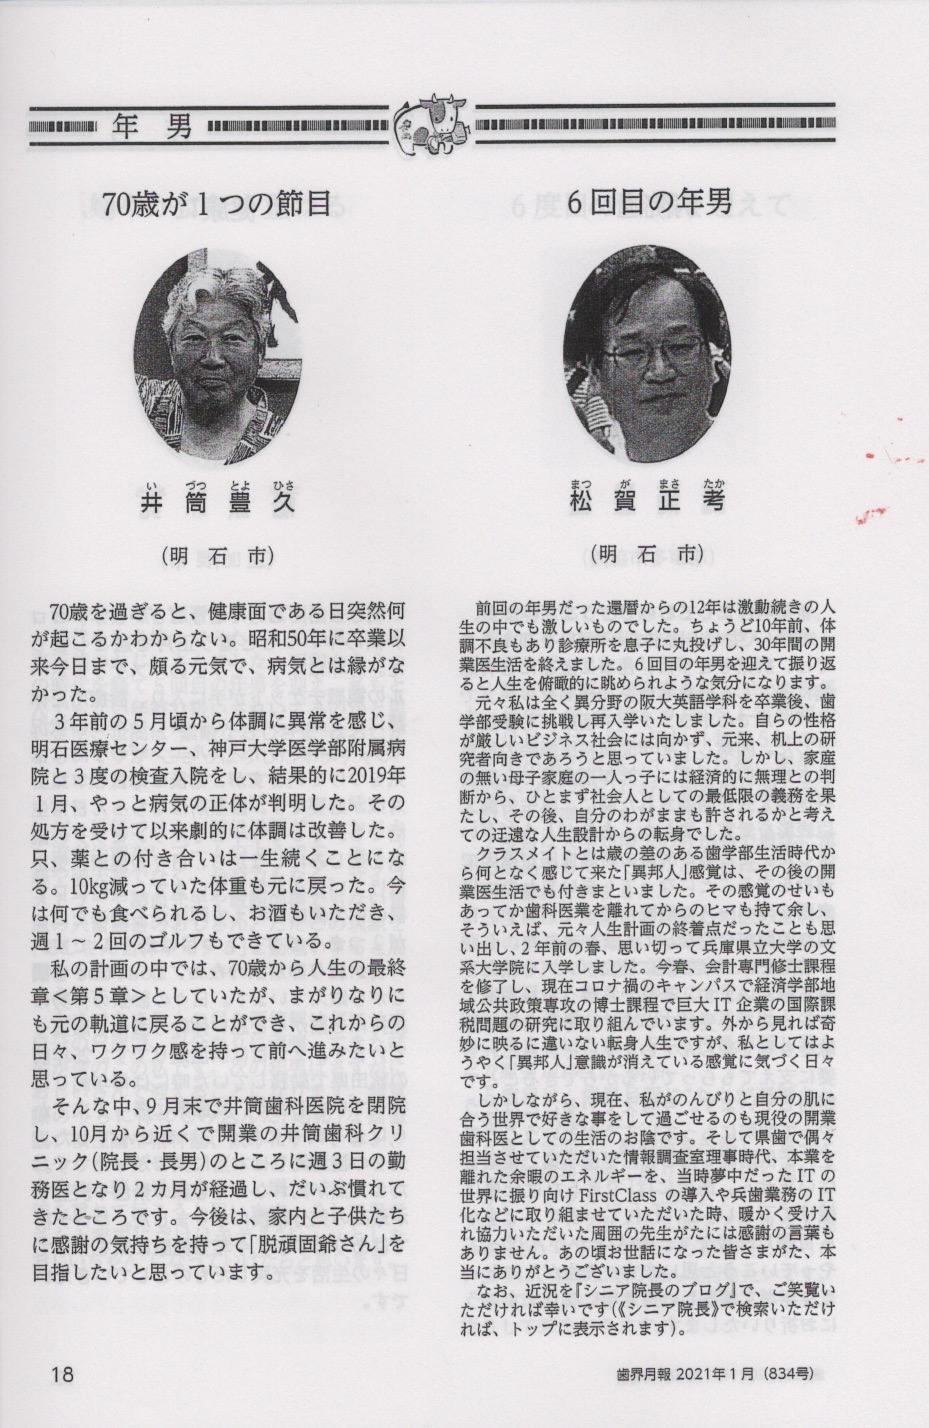 年 男
70歳が1つの節目
い づつ とよ ひさ
井 筒 豊 久
(明 石 市)
70歳を過ぎると、健康面である日突然何
が起こるかわからない。昭和50年に卒業以
来今日まで、頗る元気で、病気とは縁がな
かった。
3年前の5月頃から体調に異常を感じ、
明石医療センター、神戸大学医学部附属病
院と3度の検査入院をし、結果的に2019年
1月、やっと病気の正体が判明した。その
処方を受けて以来劇的に体調は改善した。
只、薬との付き合いは一生続くことにな
る。10kg減っていた体重も元に戻った。今
は何でも食べられるし、お酒もいただき、
週1～2回のゴルフもできている。
私の計画の中では、70歳から人生の最終
章＜第5章＞としていたが、まがりなりに
も元の軌道に戻ることができ、これからの
日々、ワクワク感を持って前へ進みたいと
思っている。
そんな中、9月末で井筒歯科医院を閉院
し、10月から近くで開業の井筒歯科クリ
ニック(院長・長男)のところに週3日の勤
務医となり2カ月が経過し、だいぶ慣れて
きたところです。今後は、家内と子供たち
に感謝の気持ちを持って「脱頑固爺さん」を
目指したいと思っています。
6回目の年男
まつ が まさ たか
松 賀 正 考
(明 石 市)
前回の年男だった還暦からの12年は激動続きの人
生の中でも激しいものでした。ちょうど10年前、体
調不良もあり診療所を息子に丸投げし、30年間の開
業医生活を終えました。6回目の年男を迎えて振り返
ると人生を俯瞰的に眺められような気分になります。
元々私は全く異分野の阪大英語学科を卒業後、歯
学部受験に挑戦し再入学いたしました。自らの性格
が厳しいビジネス社会には向かず、元来、机上の研
究者向きであろうと思っていました。しかし、家産
の無い母子家庭の一人っ子には経済的に無理との判
断から、ひとまず社会人としての最低限の義務を果
たし、その後、自分のわがままも許されるかと考え
ての迂遠な人生設計からの転身でした。
クラスメイトとは歳の差のある歯学部生活時代か
ら何となく感じて来た「異邦人」感覚は、その後の開
業医生活でも付きまといました。その感覚のせいも
あってか歯科医業を離れてからのヒマも持て余し、
そういえば、元々人生計画の終着点だったことも思
い出し、2年前の春、思い切って兵庫県立大学の文
系大学院に入学しました。今春、会計専門修士課程
を修了し、現在コロナ禍のキャンパスで経済学部地
域公共政策専攻の博士課程で巨大IT企業の国際課
税問題の研究に取り組んでいます。外から見れば奇
妙に映るに違いない転身人生ですが、私としてはよ
うやく「異邦人」意識が消えている感覚に気づく日々
です。
しかしながら、現在、私がのんびりと自分の肌に
合う世界で好きな事をして過ごせるのも現役の開業
歯科医としての生活のお陰です。そして県歯で偶々
担当させていただいた情報調査室理事時代、本業を
離れた余暇のエネルギーを、当時夢中だったITの
世界に振り向けFirstClassの導入や兵歯業務のIT
化などに取り組ませていただいた時、暖かく受け入
れ協力いただいた周囲の先生がたには感謝の言葉も
ありません。あの頃お世話になった皆さまがた、本
当にありがとうございました。
なお、近況を『シニア院長のブログ』で、ご笑覧い
ただければ幸いです(《シニア院長》で検索いただけ
れば、トップに表示されます)。
18
歯界月報 2021年1月 (834号)